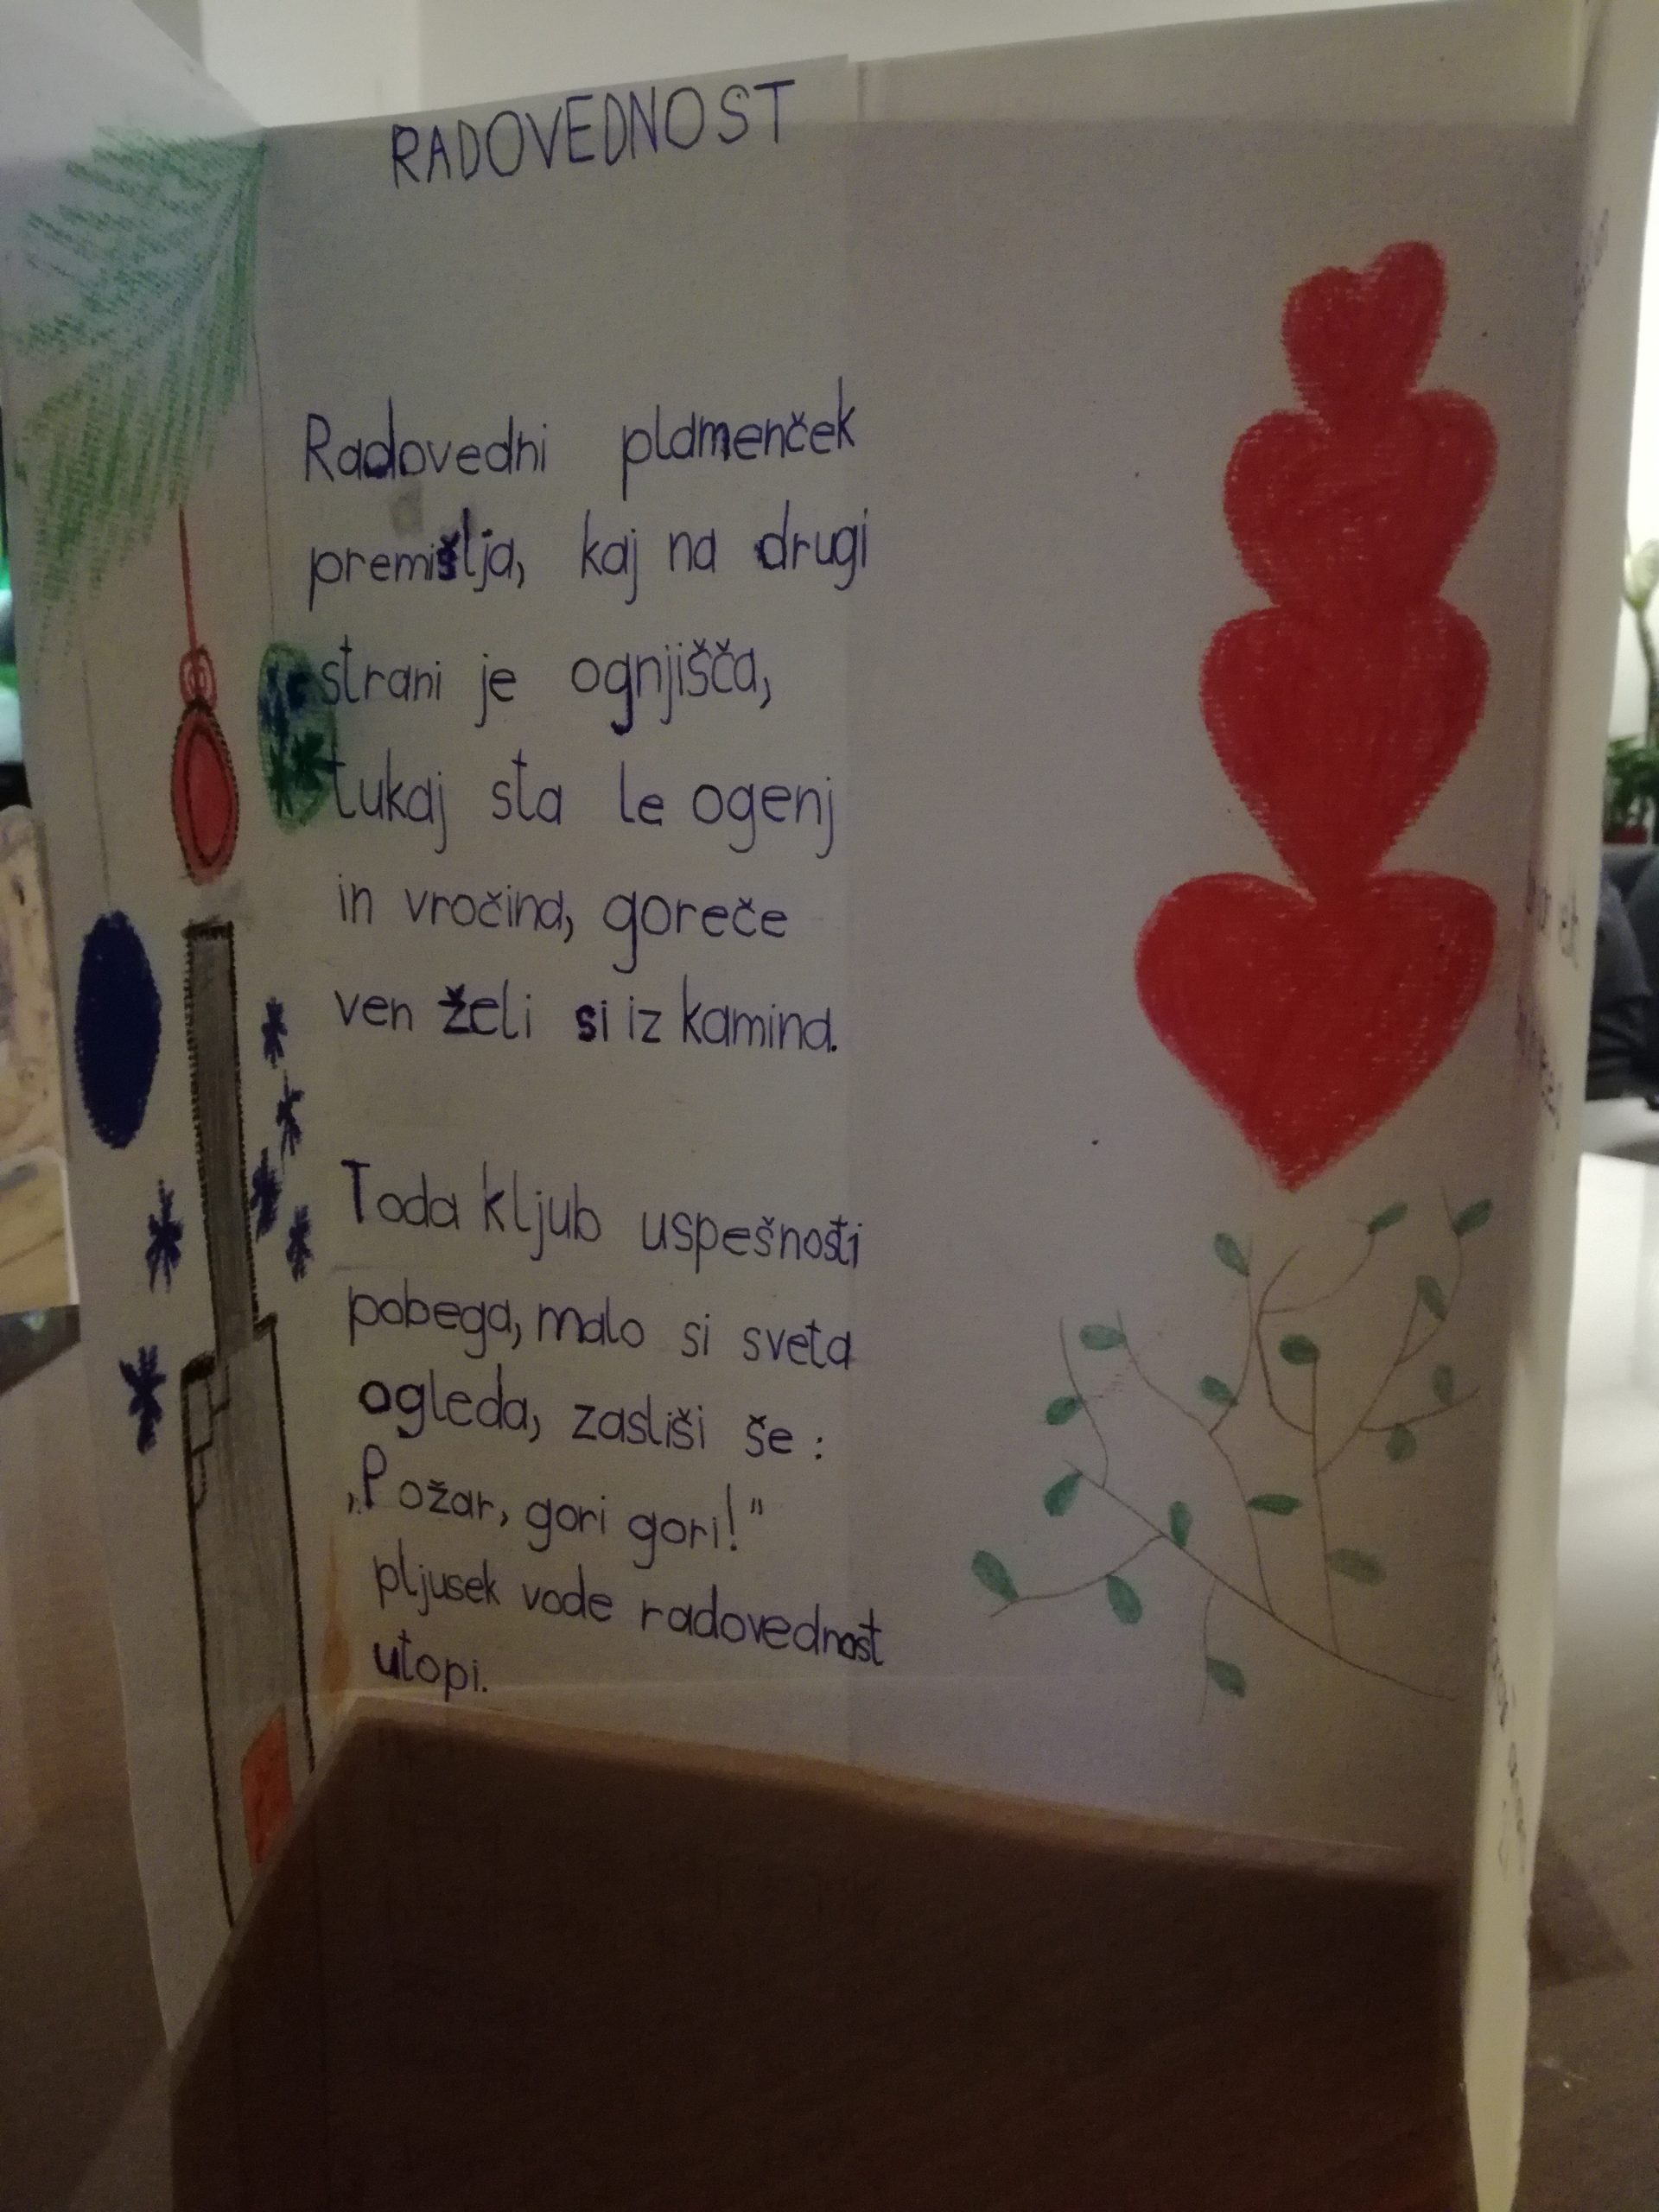 RADOVEDNOST
Radovedni plamenček
premišlja, kaj na drugi
strani je ognjišča,
tukaj sta le ogenj
in vročina, goreče
ven želi si iz kamina.
Toda kljub uspešnosti
pobega, malo si sveta
ogleda, zasliši še:
„Požar, gori gori!"
pljusek vode radovednost
utopi.